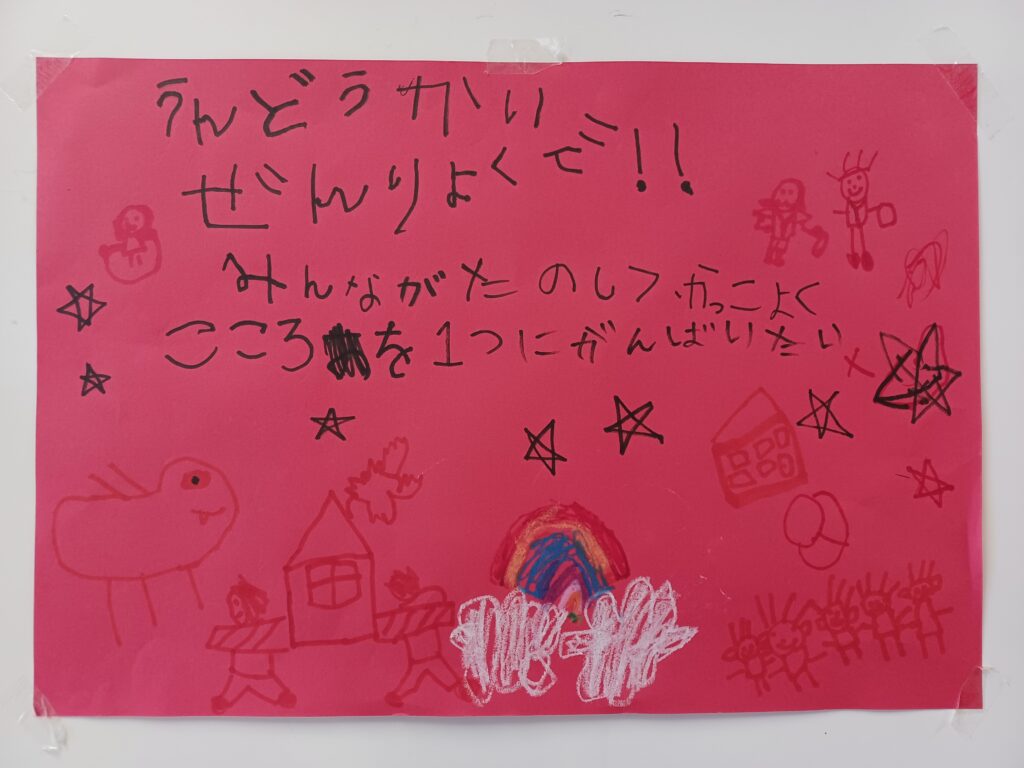 うんどうかい
ぜんりょくで!!
みんながたのしつかっこよく
こころを1つにがんばりたい